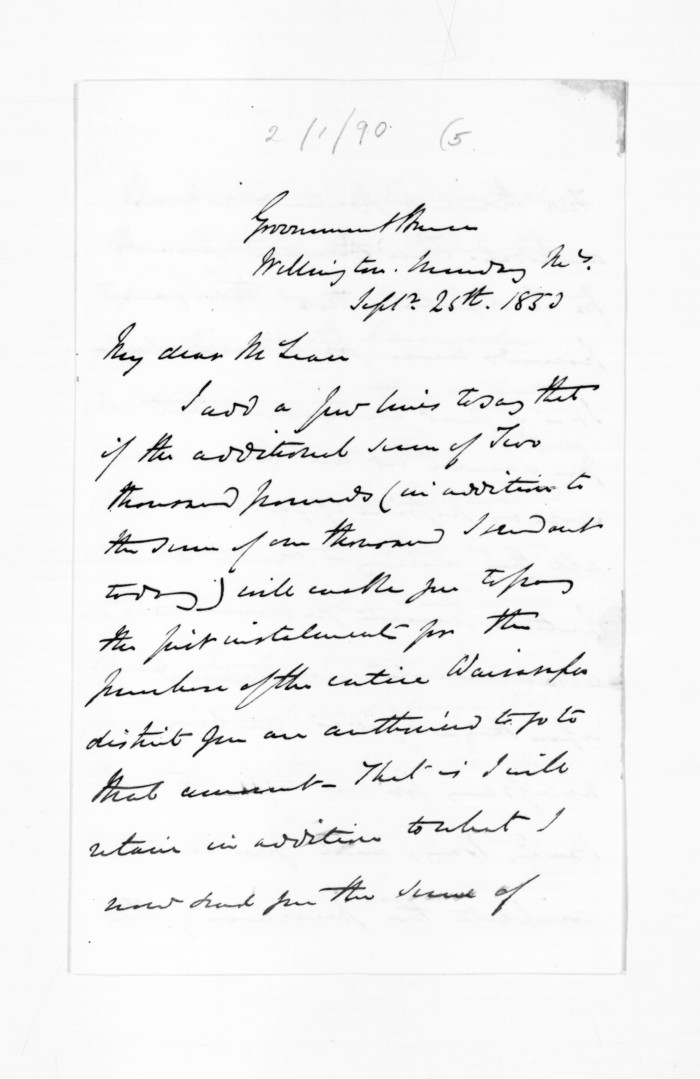 2/1/90 (5
Government House
Wellington. Monday
Septr. 25th. 1853
My dear McLean
I add a few lines to say that
if the additional sum of Two
thousand pounds (in addition to
the sum of one thousand I send out
today) will enable you to pay
the first instalments for the
purchase of the entire Wairarapa
district you are authorised to go to
that amount - That is I will
retain in addition to what I
now send you the sum of